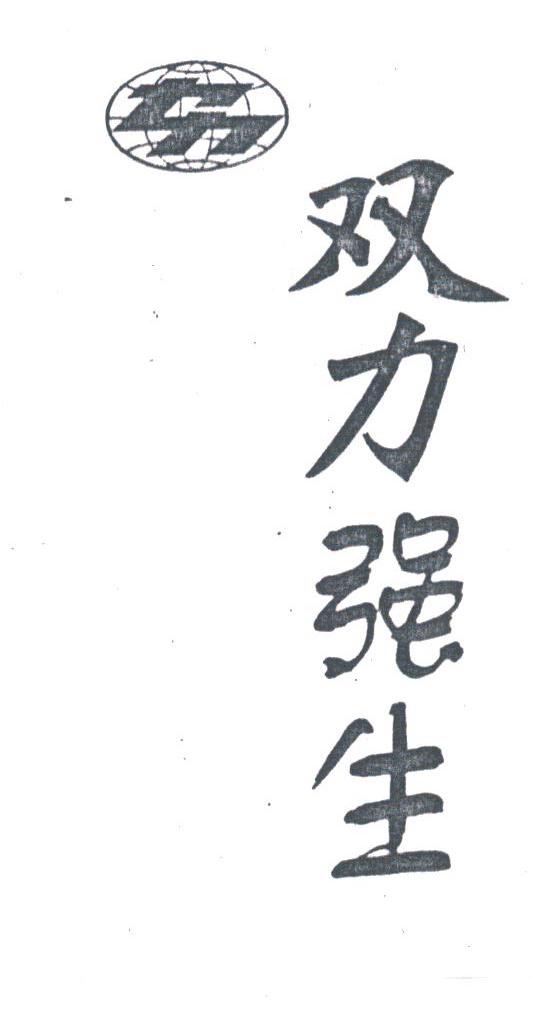 双力强生